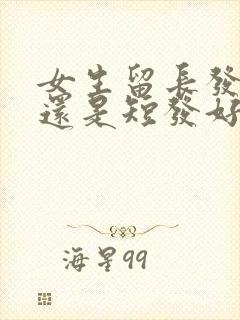 女生留長發
還是短發好
海星99